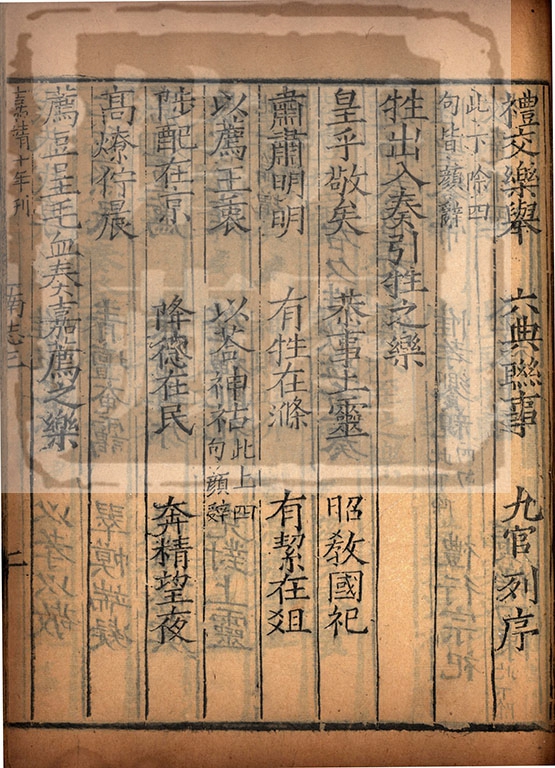 禮交樂舉 六典聯事 九官列序
此下除四
句皆顏辭
牲出入奏引牲之樂
皇乎敬矣 恭事上靈 昭教國祀
肅肅明明 有牲在滌 有絜在俎
以薦王衷 以荅神祜此上四
句顏辭
陟配在京 降德在民 奔精望夜
高燎佇晨
薦豆呈毛血奏嘉薦之樂
嘉靖十年刊 志三 二